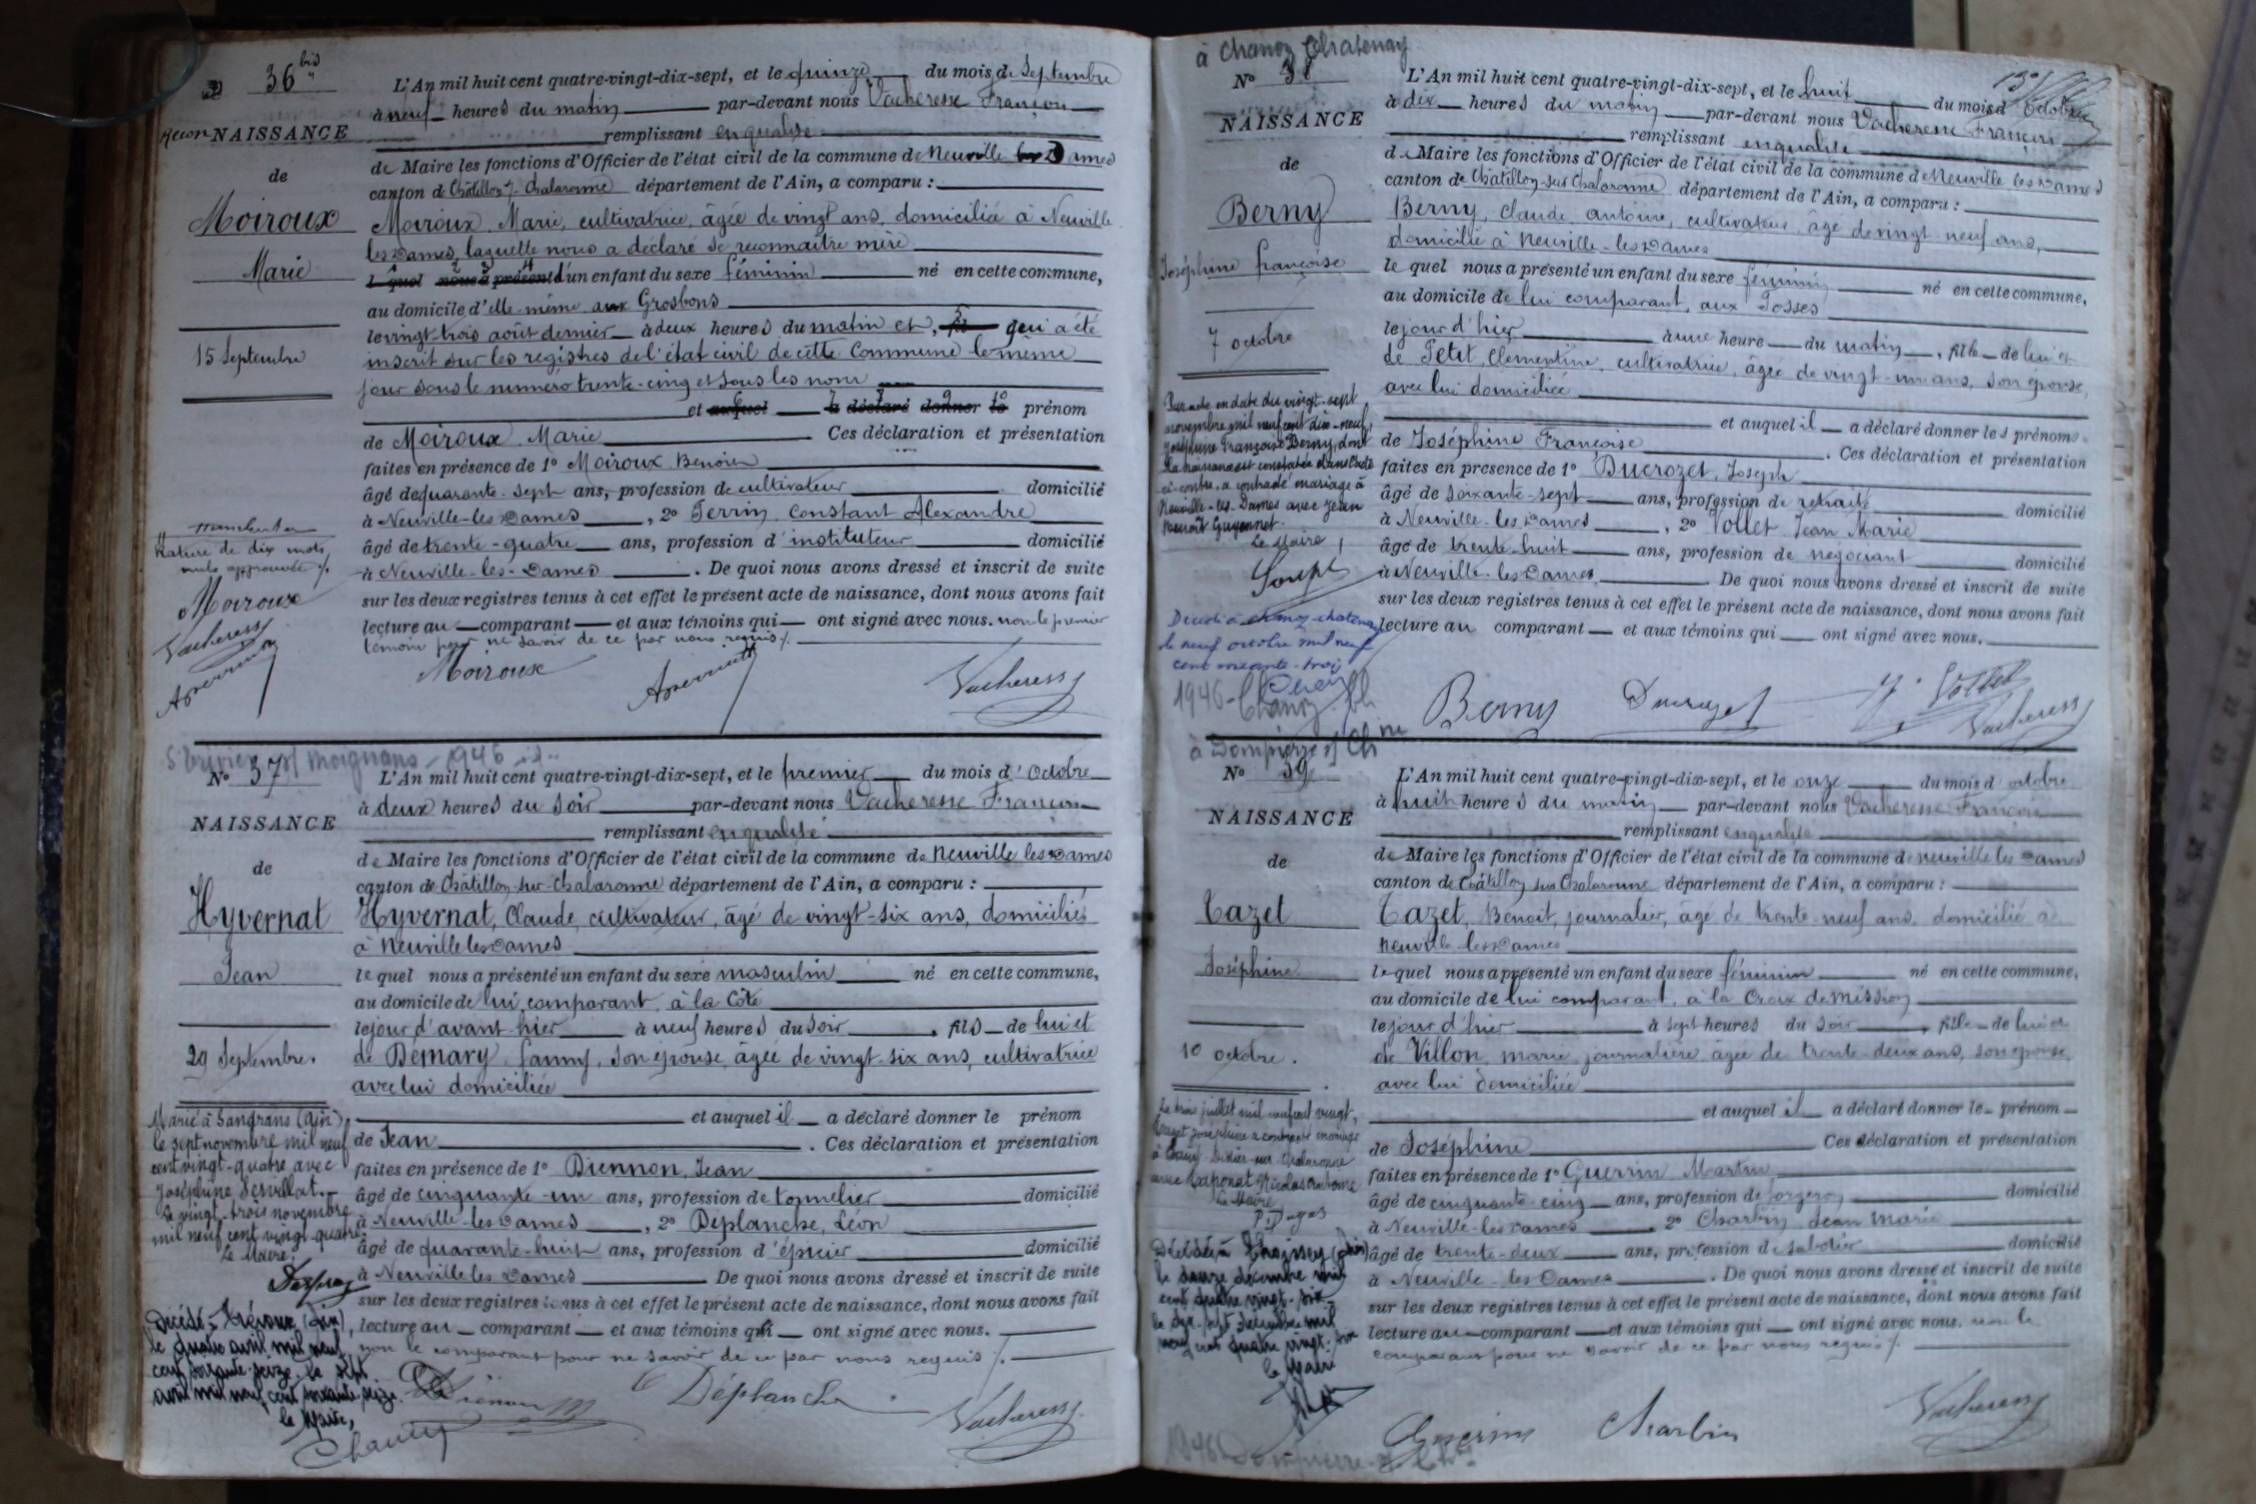 36 bis
NAISSANCE
de
Moiroux
Marie
15 Septembre
L'An mil huit cent quatre-vingt-dix-sept, et le quinze du mois de Septembre
à neuf heures du matin par-devant nous Vacheresse François
remplissant en qualité
de Maire les fonctions d'Officier de l'état civil de la commune de Neuville les Dames
canton de Châtillon s. Chalaronne département de l'Ain, a comparu :
Moiroux Marie, cultivatrice, âgée de vingt ans, domiciliée à Neuville
les Dames, laquelle nous a déclaré se reconnaître mère
l quel nous a présenté d'un enfant du sexe féminin né en cette commune,
au domicile d'elle même aux Grosbons
le vingt-trois août dernier à deux heures du matin et, qui a été
inscrit sur les registres de l'état civil de cette Commune le même
jour sous le numéro trente-cinq et sous les nom
et auquel a déclaré donner le prénom
de Moiroux Marie Ces déclaration et présentation
faites en présence de 1° Moiroux Benoît
âgé de quarante-sept ans, profession de cultivateur domicilié
à Neuville-les-Dames, 2° Perrin Constant Alexandre
âgé de trente-quatre ans, profession d'instituteur domicilié
à Neuville-les-Dames. De quoi nous avons dressé et inscrit de suite
sur les deux registres tenus à cet effet le présent acte de naissance, dont nous avons fait
lecture au comparant et aux témoins qui ont signé avec nous. non le premier
témoin pour ne savoir de ce par nous requis /.
Rature de dix mots
nuls approuvée /.
Moiroux
Vacheresse
Moiroux
Vacheresse
1946
N° 37
NAISSANCE
de
Hyvernat
Jean
29 Septembre.
L'An mil huit cent quatre-vingt-dix-sept, et le premier du mois d'Octobre
à deux heures du soir par-devant nous Vacheresse François
remplissant en qualité
de Maire les fonctions d'Officier de l'état civil de la commune de Neuville les Dames
canton de Châtillon-sur-Chalaronne département de l'Ain, a comparu :
Hyvernat, Claude, cultivateur, âgé de vingt-six ans, domicilié
à Neuville les Dames
le quel nous a présenté un enfant du sexe masculin né en cette commune,
au domicile de lui comparant, à la Côte
le jour d'avant hier à neuf heures du soir, fils de lui et
de Bémary Fanny, son épouse, âgée de vingt-six ans, cultivatrice
avec lui domiciliée
et auquel il a déclaré donner le prénom
de Jean. Ces déclaration et présentation
faites en présence de 1° Biennon, Jean
âgé de cinquante-un ans, profession de tonnelier domicilié
à Neuville-les-Dames, 2° Déplanche, Léon
âgé de quarante-huit ans, profession d'épicier domicilié
à Neuville les Dames De quoi nous avons dressé et inscrit de suite
sur les deux registres tenus à cet effet le présent acte de naissance, dont nous avons fait
lecture au comparant et aux témoins qui ont signé avec nous.
non le comparant pour ne savoir de ce par nous requis /.
Marié à Sandrans (Ain),
le sept novembre mil neuf
cent vingt-quatre avec
Joséphine Servillat.
Le vingt-trois novembre
mil neuf cent vingt-quatre.
Le Maire :
Décédé à Trévoux (Ain),
le quatre avril mil neuf
cent soixante-seize. le sept
avril mil neuf cent soixante seize.
le Maire,
Déplanche
Vacheresse
à Chanoz Chatenay
N° 38
NAISSANCE
de
Berny
Joséphine françoise
7 octobre
L'An mil huit cent quatre-vingt-dix-sept, et le huit du mois d'Octobre
à dix heures du matin par-devant nous Vacheresse François
remplissant en qualité
de Maire les fonctions d'Officier de l'état civil de la commune de Neuville les Dames
canton de Châtillon-sur-Chalaronne département de l'Ain, a comparu :
Berny, Claude antoine, cultivateur, âgé de vingt-neuf ans,
domicilié à Neuville-les-Dames
le quel nous a présenté un enfant du sexe féminin né en cette commune,
au domicile de lui comparant, aux Fosses
le jour d'hier à une heure du matin, fille de lui et
de Petit Clémentine, cultivatrice, âgée de vingt-un ans, son épouse,
avec lui domiciliée
et auquel il a déclaré donner les prénoms
de Joséphine Françoise. Ces déclaration et présentation
faites en présence de 1° Ducrozet, Joseph
âgé de soixante-sept ans, profession de retraité domicilié
à Neuville-les-Dames, 2° Vollet Jean Marie
âgé de trente-huit ans, profession de négociant domicilié
à Neuville-les-Dames. De quoi nous avons dressé et inscrit de suite
sur les deux registres tenus à cet effet le présent acte de naissance, dont nous avons fait
lecture au comparant et aux témoins qui ont signé avec nous.
Par acte en date du vingt-sept
novembre mil neuf cent dix-neuf,
Joséphine Françoise Berny, dont
la naissance est constatée dans l'acte
ci-contre, a contracté mariage à
Neuville-les-Dames avec Jean
Benoît Guyonnet.
Le Maire,
Décédée à Chanoz-Chatenay
le neuf octobre mil neuf
cent soixante-trois
1946 - Chanoz
Berny Ducrozet J. Vollet
Vacheresse
à Dompierre s/ Ch ne
N° 39
NAISSANCE
de
Cazet
Joséphine
10 octobre.
L'An mil huit cent quatre-vingt-dix-sept, et le onze du mois d'octobre
à huit heures du matin par-devant nous Vacheresse François
remplissant en qualité
de Maire les fonctions d'Officier de l'état civil de la commune de Neuville les Dames
canton de Châtillon sur Chalaronne département de l'Ain, a comparu :
Cazet, Benoît, journalier, âgé de trente-neuf ans, domicilié à
Neuville-les-Dames
le quel nous a présenté un enfant du sexe féminin né en cette commune,
au domicile de lui comparant, à la Croix de Mission
le jour d'hier à sept heures du soir, fille de lui et
de Villon, marie, journalière, âgée de trente-deux ans, son épouse,
avec lui domiciliée
et auquel il a déclaré donner le prénom
de Joséphine Ces déclaration et présentation
faites en présence de 1° Guerrin Martin
âgé de cinquante-cinq ans, profession de forgeron domicilié
à Neuville-les-Dames, 2° Charbin Jean Marie
âgé de trente-deux ans, profession de sabotier domicilié
à Neuville-les-Dames. De quoi nous avons dressé et inscrit de suite
sur les deux registres tenus à cet effet le présent acte de naissance, dont nous avons fait
lecture au comparant et aux témoins qui ont signé avec nous. non le
comparant pour ne savoir de ce par nous requis /.
Le trois juillet mil neuf cent vingt,
Cazet Joséphine a contracté mariage
à Saint Didier-sur-Chalaronne
avec Nicolas Antoine
Le Maire
Décédée à Thoissey (Ain)
le douze décembre mil
neuf cent quatre vingt-six
le dix-sept décembre mil
neuf cent quatre vingt-six
le Maire
Guerrin Charbin
Vacheresse
1946 Dompierre